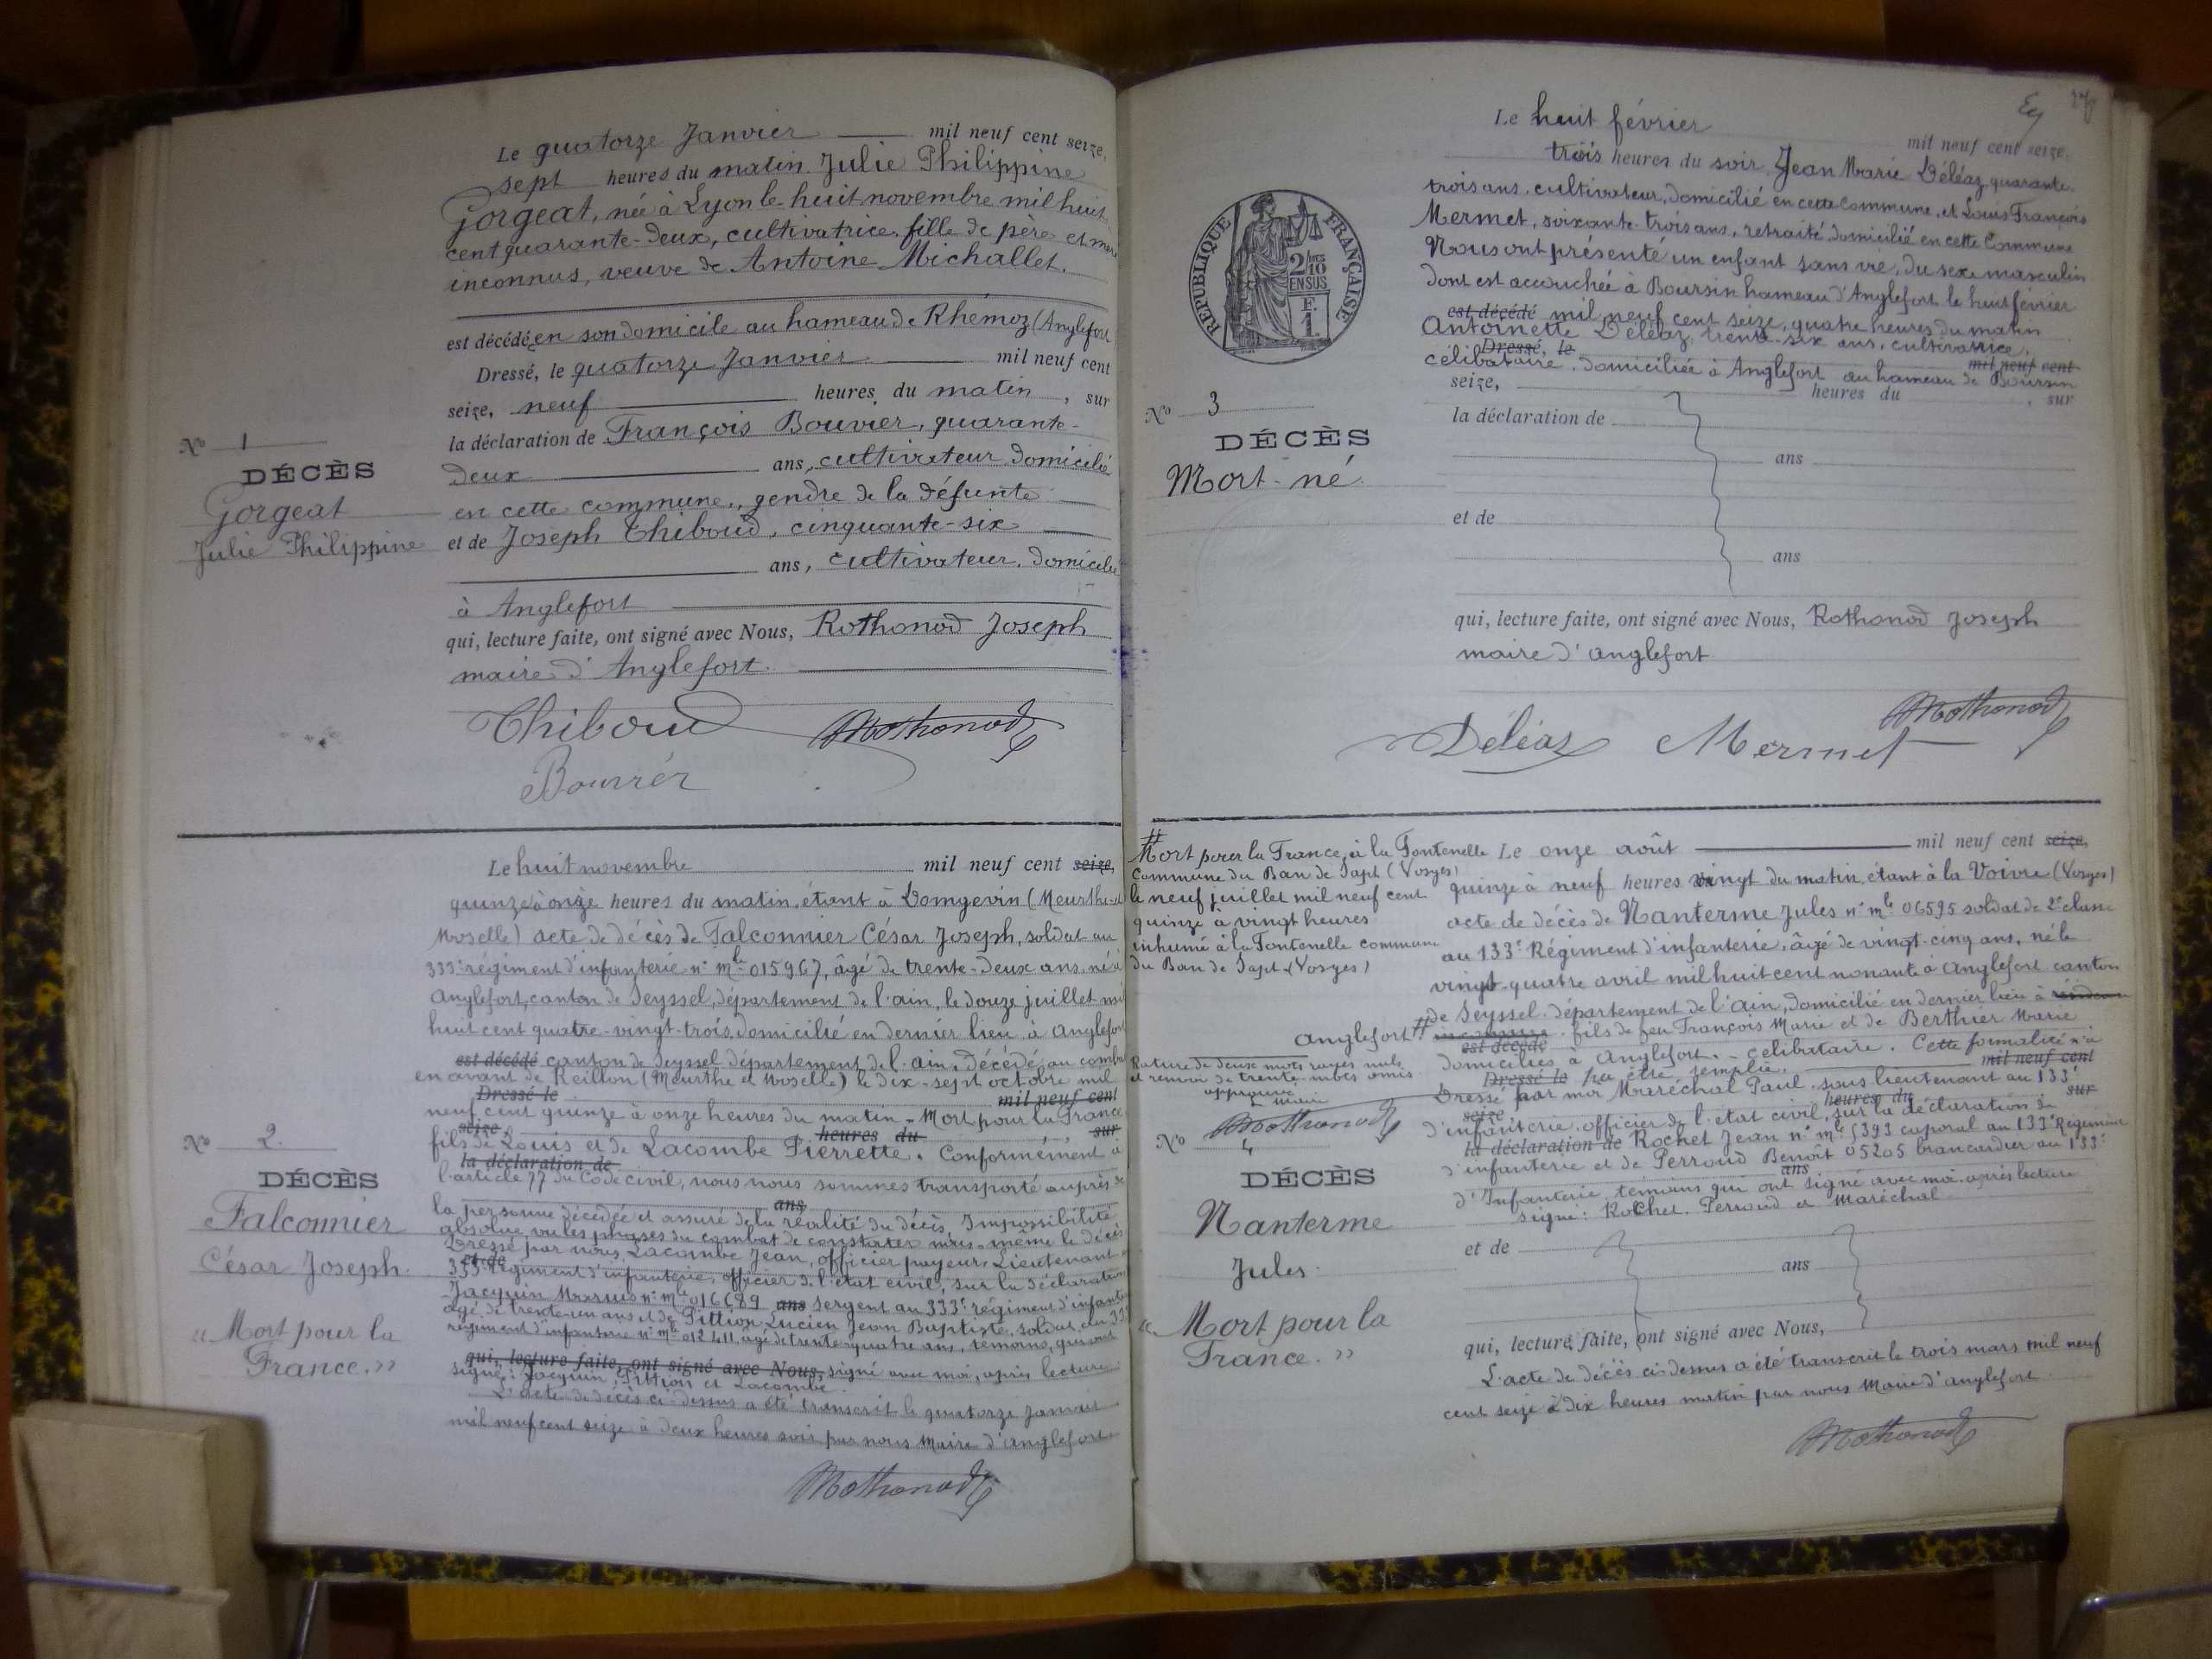 Le quatorze Janvier mil neuf cent seize,
sept heures du matin Julie Philippine
Gorgeat, née à Lyon le huit novembre mil huit
cent quarante-deux, cultivatrice, fille de père et mère
inconnus, veuve de Antoine Michallet.
est décédé en son domicile au hameau de Rhémoz (Anglefort
Dressé, le quatorze Janvier mil neuf cent
seize, neuf heures du matin, sur
la déclaration de François Bouvier, quarante-
deux ans, cultivateur domicilié
en cette commune, gendre de la défunte
et de Joseph Thiboud, cinquante-six
ans, cultivateur, domicilié
à Anglefort
qui, lecture faite, ont signé avec Nous, Rothonod Joseph
maire d'Anglefort.
Thiboud Rothonod
Bouvier
N° 1
DÉCÈS
Gorgeat
Julie Philippine
Le huit novembre mil neuf cent seize,
quinze à onze heures du matin, étant à Domgevin (Meurthe-et
Moselle) acte de décès de Falconnier César Joseph, soldat au
333e régiment d'infanterie n° mle 015967, âgé de trente-deux ans, né à
Anglefort, canton de Seyssel, département de l'ain, le douze juillet mil
huit cent quatre-vingt-trois, domicilié en dernier lieu à Anglefort
est décédé canton de Seyssel département de l'ain. Décédé au combat
en avant de Reillon (Meurthe et Moselle) le dix-sept octobre mil
Dressé le mil neuf cent
neuf cent quinze à onze heures du matin - Mort pour la France
seize, heures du sur
fils de Louis et de Lacombe Pierrette. Conformément à
la déclaration de
l'article 77 du Code civil, nous nous sommes transporté auprès de
ans
la personne décédée et assuré de la réalité du décès. Impossibilité
absolue vu les phases du combat de constater nous-même le décès
Dressé par nous Lacombe Jean, officier payeur, Lieutenant au
et de
333e régiment d'infanterie, officier de l'état civil, sur la déclaration
Jacquin Marius n° mle 016689 ans sergent au 333e régiment d'infanterie
âgé de trente-un ans et de Pittion Lucien Jean Baptiste, soldat au 333
régiment d'infanterie n° mle 012411 âgé de trente-quatre ans, témoins, qui ont
qui, lecture faite, ont signé avec Nous, signé avec moi, après lecture
signé: Jacquin, Pittion et Lacombe
L'acte de décès ci-dessus a été transcrit le quatorze Janvier
mil neuf cent seize à deux heures soir par nous Maire d'Anglefort
Rothonod
N° 2
DÉCÈS
Falconnier
César Joseph.
"Mort pour la
France."
Le huit février mil neuf cent seize,
trois heures du soir Jean Marie Déléaz quarante-
trois ans, cultivateur, domicilié en cette commune, et Louis François
Mermet, soixante-trois ans, retraité domicilié en cette Commune
Nous ont présenté un enfant sans vie, du sexe masculin
dont est accouchée à Boursin hameau d'Anglefort le huit février
est décédé mil neuf cent seize, quatre heures du matin
Antoinette Déléaz, trente-six ans, cultivatrice,
Dressé, le mil neuf cent
célibataire, domiciliée à Anglefort au hameau de Boursin
seize, heures du, sur
la déclaration de
ans
et de
ans
qui, lecture faite, ont signé avec Nous, Rothonod Joseph
maire d'anglefort
Déléaz Mermet Rothonod
RÉPUBLIQUE FRANÇAISE
2/10
EN SUS
F.
1.
N° 3
DÉCÈS
Mort-né.
# Mort pour la France, à la Fontenelle
Commune du Ban de Sapt (Vosges)
le neuf juillet mil neuf cent
quinze à vingt heures
inhumé à la Fontenelle commune
du Ban de Sapt (Vosges)
Le onze août mil neuf cent seize,
quinze à neuf heures vingt du matin, étant à la Voivre (Vosges)
acte de décès de Nanterme Jules n° mle 06595 soldat de 2e classe
au 133e Régiment d'infanterie, âgé de vingt-cinq ans, né le
vingt-quatre avril mil huit cent nonante à Anglefort canton
de Seyssel, département de l'ain, domicilié en dernier lieu à
Anglefort # fils de feu François Marie et de Berthier Marie
est décédé
domiciliés à Anglefort. - célibataire. Cette formalité n'a
Dressé le pu être remplie. mil neuf cent
Dressé par moi Maréchal Paul, sous lieutenant au 133e
seize, heures du sur
d'infanterie, officier de l'état civil, sur la déclaration de
la déclaration de Rochet Jean n° mle 5393 caporal au 133e Régiment
d'infanterie et de Perroud Benoit 05205 brancardier au 133e
ans
d'Infanterie, témoins qui ont signé avec moi après lecture
signé: Rochet. Perroud et Maréchal
et de
ans
qui, lecture faite, ont signé avec Nous,
L'acte de décès ci-dessus a été transcrit le trois mars mil neuf
cent seize à dix heures matin par nous Maire d'anglefort
Rothonod
Rature de deux mots rayés nuls
et renvoi de trente mots omis
approuvé
Le Maire
Rothonod
N° 4
DÉCÈS
Nanterme
Jules.
"Mort pour la
France."